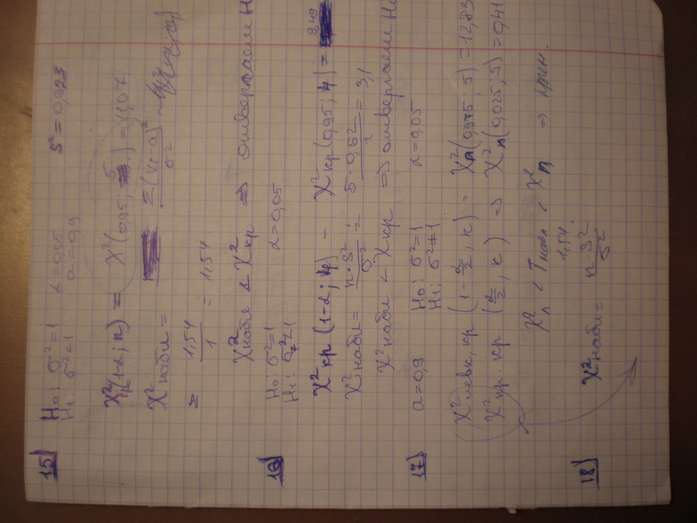 15) H₀: σ²=1 α=0,05 S²=0,923
H₁: σ²<1 a=0,9
χ²(1-α; n) = χ²(0,95; 5) = 11,07
χ²набл = Σ(xᵢ-a)²/σ² ~
= 1,54/1 = 1,54
χ²набл < χ²кр ⇒ отвергаем H
16) H₀: σ²=1 α=0,05
H₁: σ²<1
χ²кр (1-α; 4) = χ²кр(0,95; 4) = 9,49
χ²набл = n·S²/σ² = = 3,1
χ²набл < χкр ⇒ отвергаем H₀
17) a=0,9 H₀: σ²=1 α=0,05
H₁: σ²≠1
χ²левк, кр (1-α/2, k) = χ²п(0,975; 5) = 12,83
χ²кр кр (α/2, k) ⇒ χ²п(0,025; 5) = 0,41
χ²л < Tнабл < χ²п ⇒ прин.
1,54
18) χ²набл = n·S²/σ²